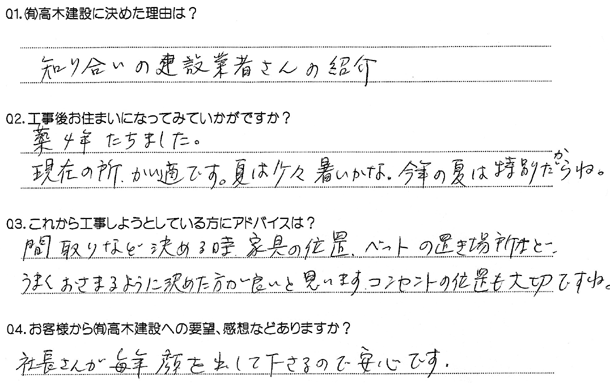 Q1.㈲高木建設に決めた理由は？
知り合いの建設業者さんの紹介
Q2.工事後お住まいになってみていかがですか？
築4年たちました。
現在の所、かい適です。夏は少々暑いかな。今年の夏は特別だからね。
Q3.これから工事しようとしている方にアドバイスは？
間取りなど決める時家具の位置、ベットの置き場所など、
うまくおさまるように決めた方が良いと思います。コンセントの位置も大切ですね。
Q4.お客様から㈲高木建設への要望、感想などありますか？
社長さんが毎年顔を出して下さるので安心です。